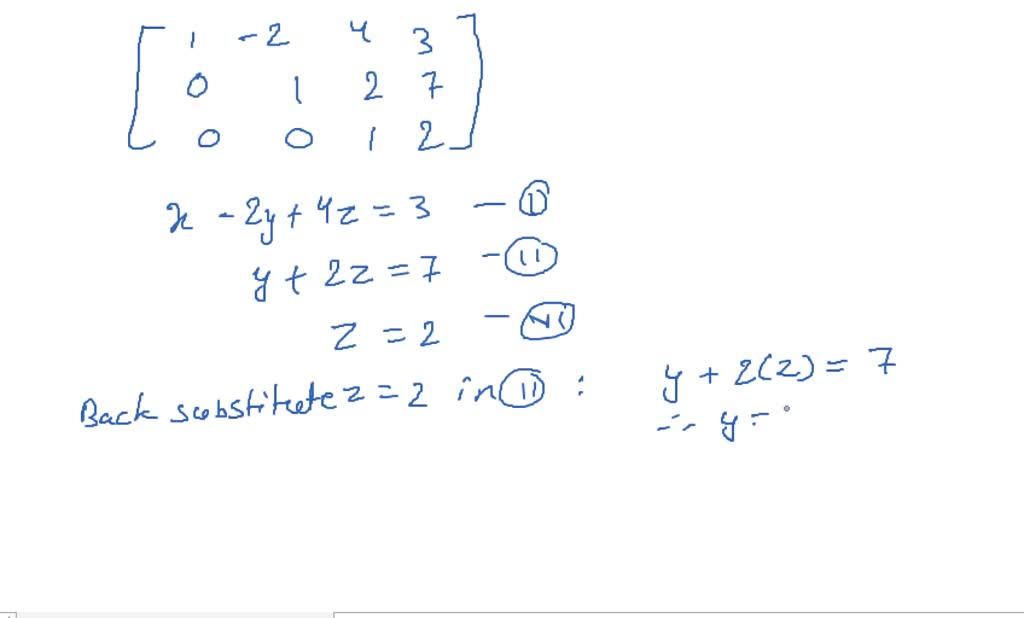 1 -2 4 3
0 1 2 7
0 0 1 2
x - 2y + 4z = 3 - (I)
y + 2z = 7 - (II)
z = 2 - (III)
Back substitute z = 2 in (II) : y + 2(2) = 7
∴ y =